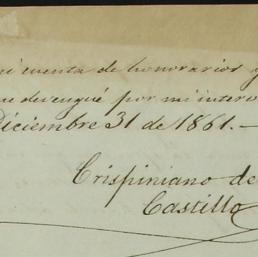 mi cuenta de honorarios y
que devengué por mi interv
Diciembre 31 de 1861.—
Crispiniano de
Castillo